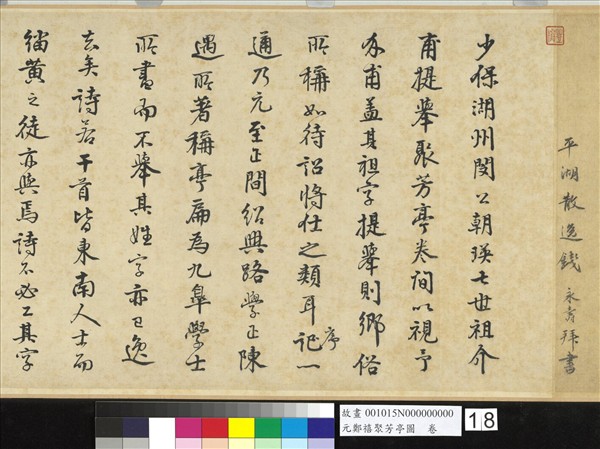 平湖散逸錢永育拜書
少保湖州閔公朝瑛七世祖介
甫提舉聚芳亭卷間以視予
介甫蓋其祖字提舉則鄉俗
所稱如待詔將仕之類耳記一
序
通乃元至正間紹興路學正陳
遇所著稱亭扁為九皐學士
所書而不舉其姓字亦已逸
去矣詩若干首皆東南人士而
緇黃之徒亦與焉詩不必工其字
故畫 001015N000000000
元鄭禧聚芳亭圖 卷
18